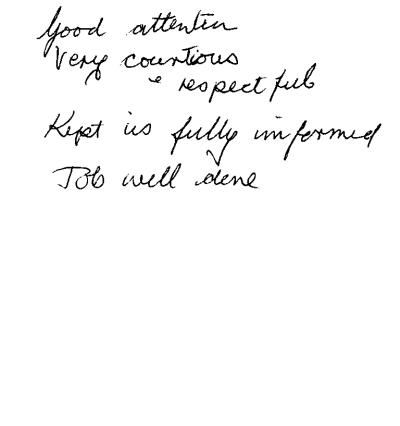 Good attention
Very courtious
& respectful
Kept us fully informed
Job well done